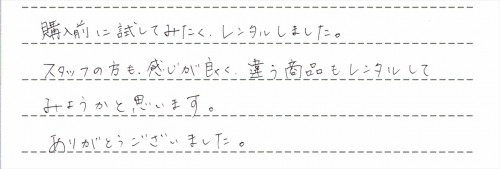 購入前に試してみたく、レンタルしました。
スタッフの方も、感じが良く、違う商品もレンタルして
みようかと思います。
ありがとうございました。